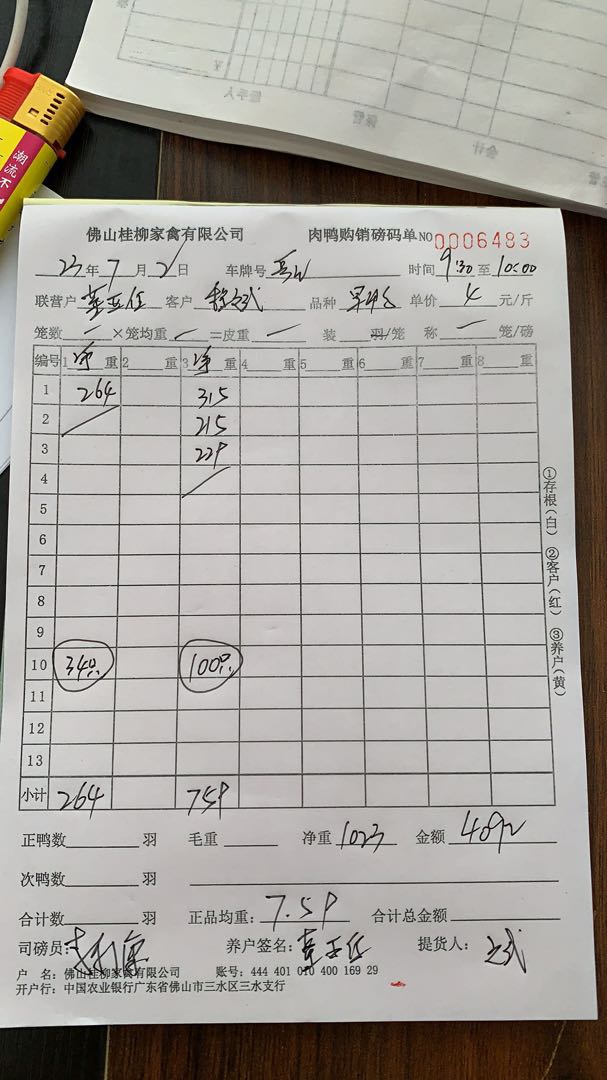 潮流不
佛山桂柳家禽有限公司 肉鸭购销磅码单 NO 0006483
23年7月21日 车牌号 时间 9:30至10:00
联营户 客户 品种 单价 4 元/斤
笼数 — ×笼均重 — =皮重 — 装 羽/笼 称 — 笼/磅
编号 1 净 重 2 重 3 净 重 4 重 5 重 6 重 7 重 8 重
1 264 315
2 215
3 229
4
5
6
7
8
9
10 34只 100只
11
12
13
小计 264 759
①存根(白) ②客户(红) ③养户(黄)
正鸭数 羽 毛重 净重 1023 金额 4092
次鸭数 羽
合计数 羽 正品均重: 7.59 合计总金额
司磅员: 养户签名: 提货人:
户 名: 佛山桂柳家禽有限公司 账号: 444 401 010 400 169 29
开户行: 中国农业银行广东省佛山市三水区三水支行